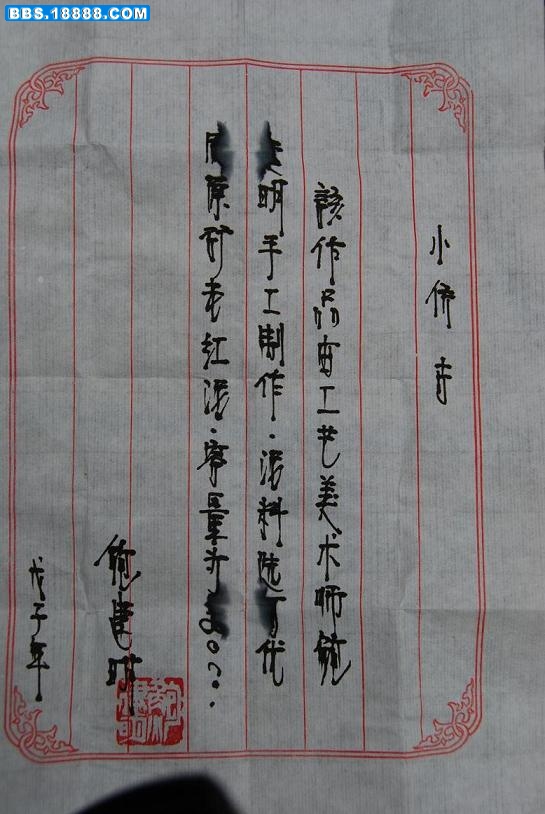 BBS.18888.COM
小侨
该作品由工艺美术师鲍
明手工制作.泥料选 优
原矿老红泥.容量
鲍 明
戊子年